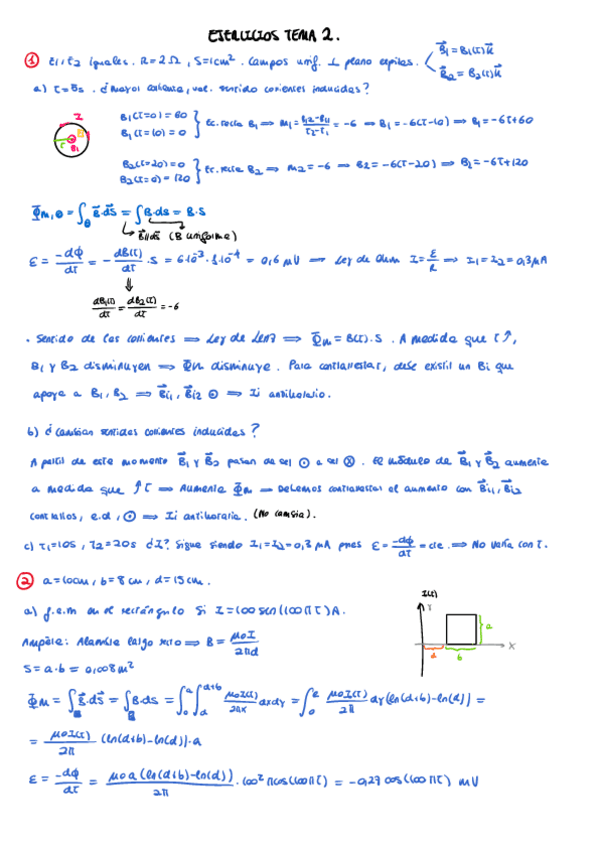 EJERCICIOS TEMA 2.
① E1 y E2 iguales. R=2Ω, S=1cm². Campos unif. ⊥ plano espiras. B⃗1 = B1(t)k⃗
B⃗2 = B2(t)k⃗
a) t=8s. ¿mayor corriente, sentido corrientes inducidas?
B1(t=0) = 60
B1(t=10) = 0
Ec. recta B1 ⇒ m1 = = -6 ⇒ B1 = -6(t-10) ⇒ B1 = -6t+60
I
B
r
B1
B2(t=20) = 0
B2(t=0) = 120
Ec. recta B2 ⇒ m2 = -6 ⇒ B2 = -6(t-20) ⇒ B2 = -6t+120
Φm,⊙ = ∫ B⃗·dS⃗ = ∫ B·ds = B·S
B⃗||dS⃗ (B uniforme)
ε = -dΦ/dt = - dB(t)/dt · S = 6·10⁻³ · 1·10⁻⁴ = 0,6 μV ⇒ Ley de Ohm I = ε/R ⇒ I1 = I2 = 0,3 μA
dB1(t)/dt = dB2(t)/dt = -6
· Sentido de las corrientes ⇒ Ley de Lenz ⇒ Φm = B(t)·S. A medida que t↑,
B1 y B2 disminuyen ⇒ Φm disminuye. Para contrarrestar, debe existir un Bi que
apoye a B1, B2 ⇒ B⃗i1, B⃗i2 ⊙ ⇒ Ii antihorario.
b) ¿cambian sentidos corrientes inducidas?
A partir de este momento B⃗1 y B⃗2 pasan de ser ⊙ a ser ⊗. El módulo de B⃗1 y B⃗2 aumenta
a medida que ↑t ⇒ Aumenta Φm ⇒ Debemos contrarrestar el aumento con B⃗i1, B⃗i2
contrarios, e.d, ⊙ ⇒ Ii antihoraria. (No cambia).
c) t1=10s, t2=20s ¿I? Sigue siendo I1=I2=0,3 μA pues ε = -dΦ/dt = cte. ⇒ No varía con t.
② a=10cm, b=8cm, d=15cm.
a) f.e.m en el rectángulo si I=100 sen(100πt)A.
I(t)
Y
a
X
d
b
Ampère: Alambre largo recto ⇒ B = μ0I/2πd
S = a·b = 0,008m²
Φm = ∫ B⃗·dS⃗ = ∫ B·ds = ∫₀ᵃ ∫ᵈ⁺ᵇ_d μ0I(t)/2πx dxdy = ∫₀ᵃ μ0I(t)/2π dy(ln(d+b)-ln(d)) =
= μ0I(t)/2π (ln(d+b)-ln(d))·a
ε = -dΦ/dt = μ0a(ln(d+b)-ln(d))/2π · 100²πcos(100πt) = -0,27cos(100πt) mV